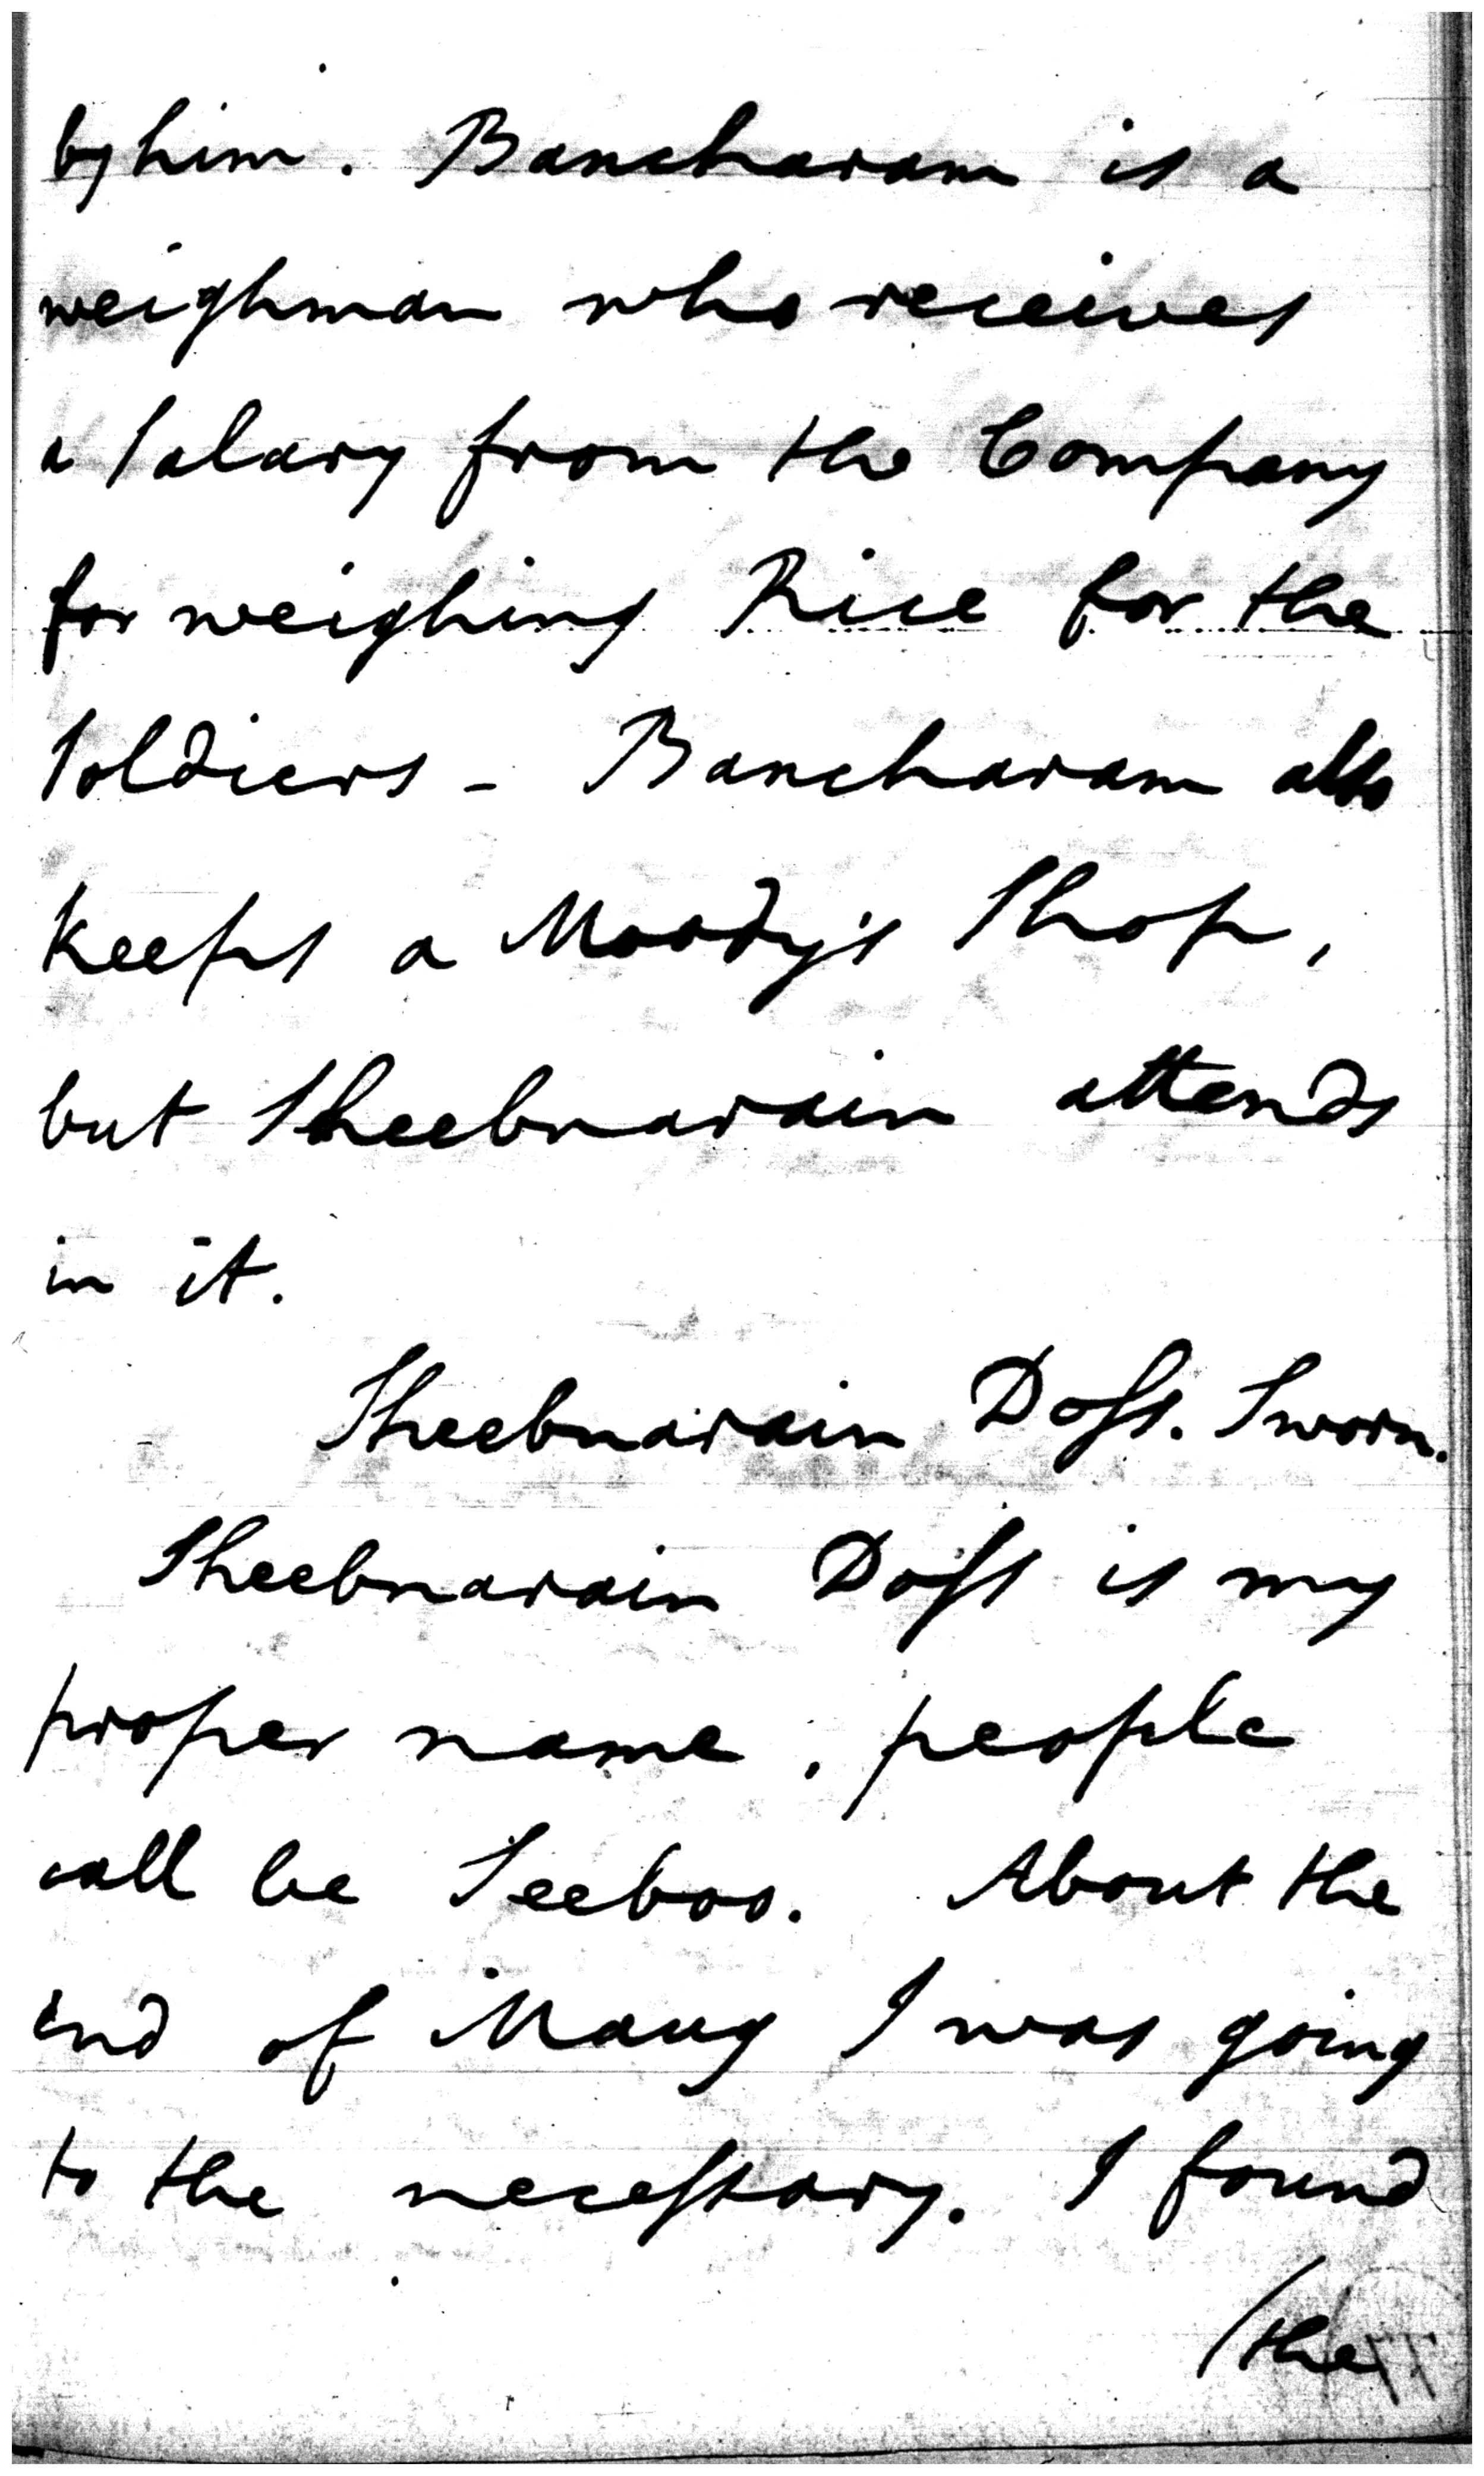 by him. Bancharam is a
weighman who receives
a Salary from the Company
for weighing Rice for the
Soldiers - Bancharam also
keeps a Moody's Shop,
but Sheebnarain attends
in it.
Sheebnarain Doss. Sworn.
Sheebnarain Doss is my
proper name, people
call be Seeboo. About the
end of Maug I was going
to the necessary. I found
/the